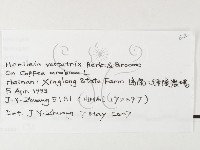 Hemileia vastatrix Berk & Broome
On Coffea arabica L
Hainan: Xinglong State Farm 海南: 兴隆农場
5 Apr. 1993
J-Y. Zhuang
Det. J.Y. Zhuang May